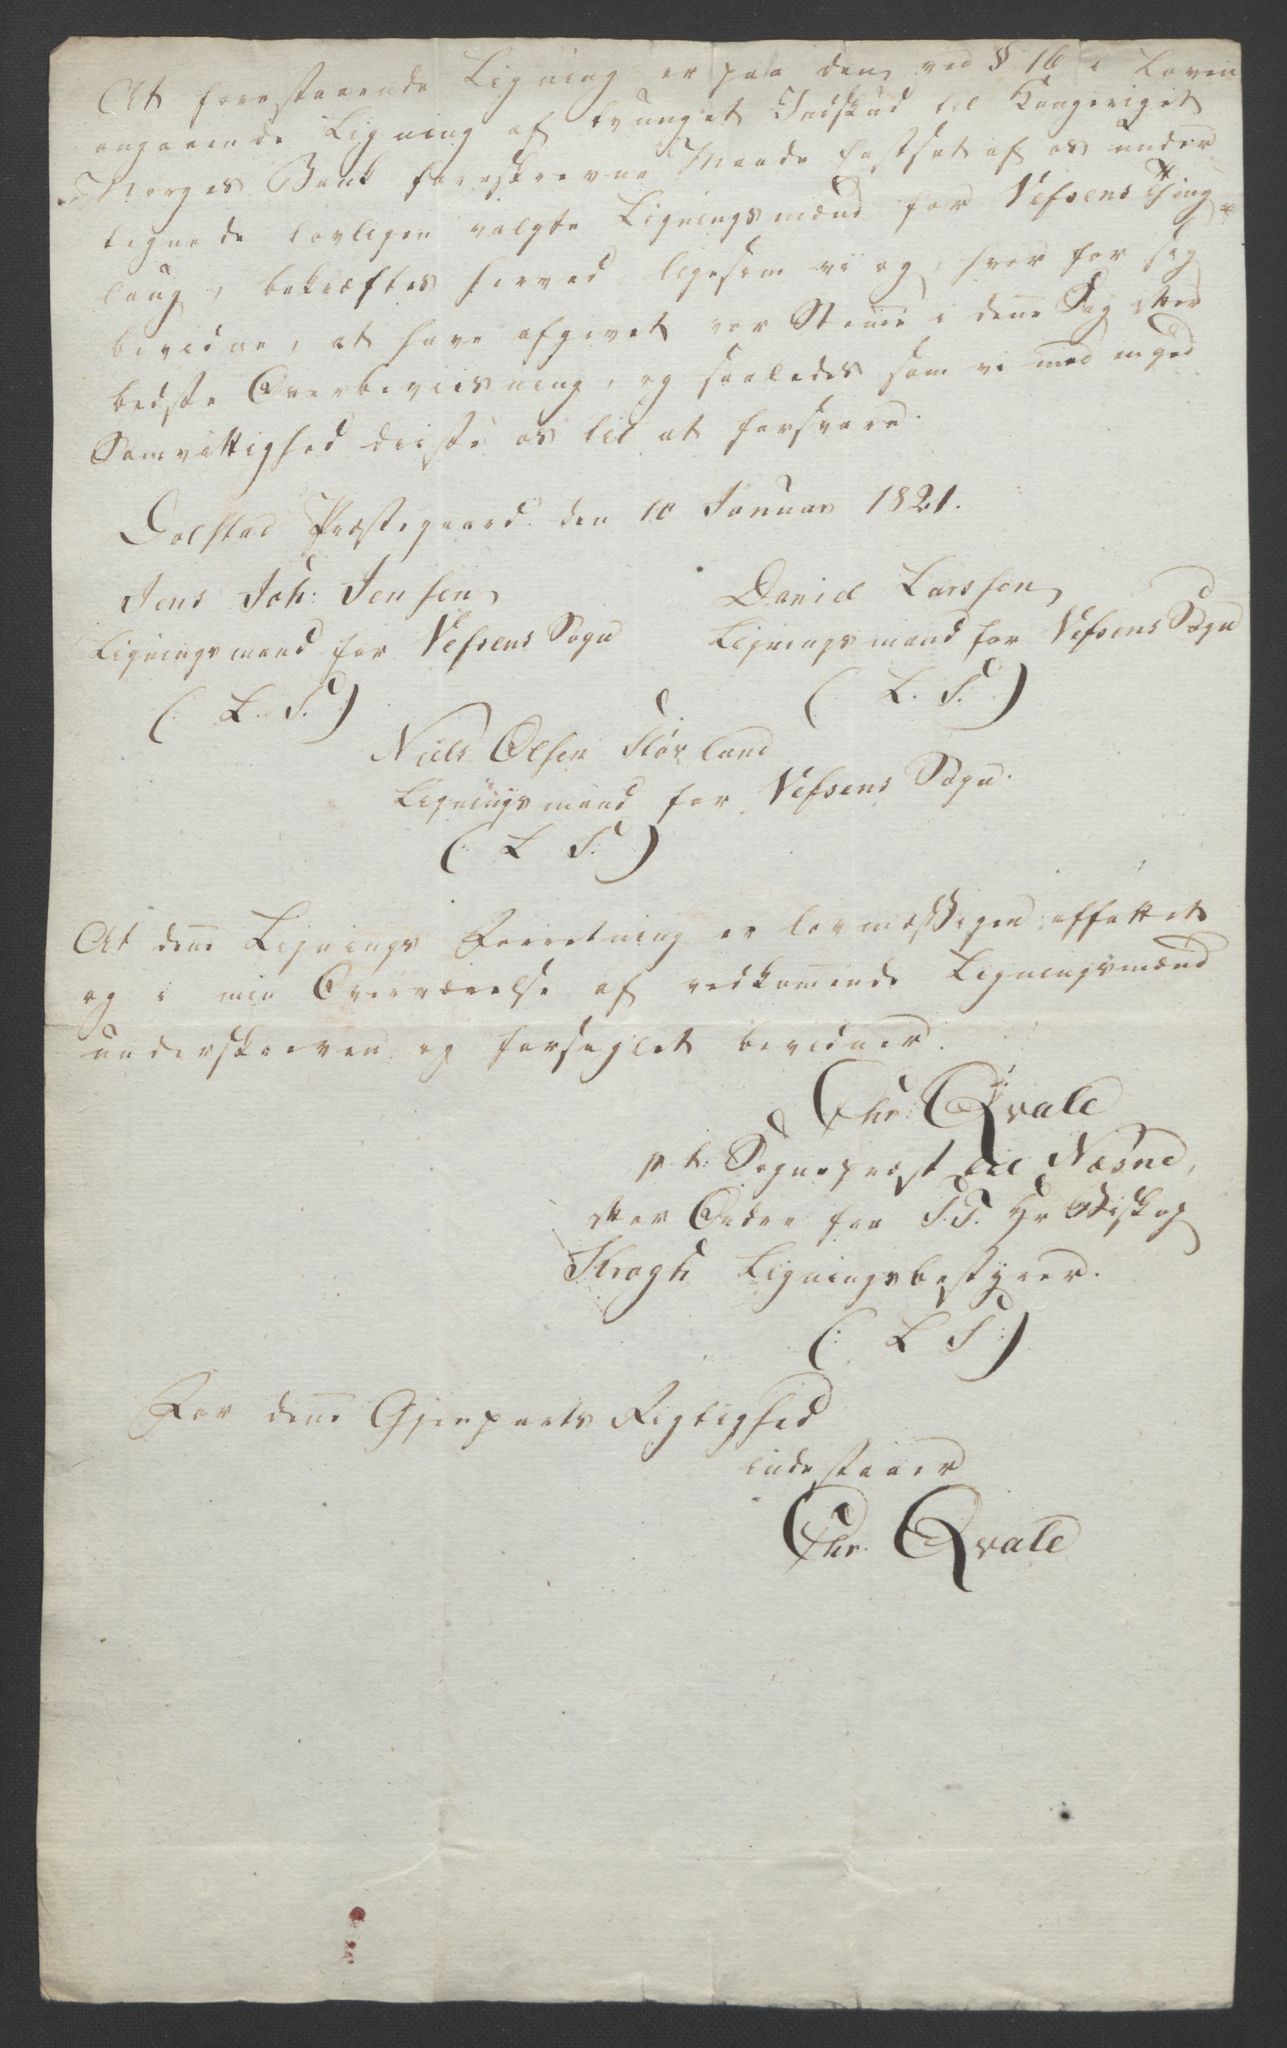 At forestaaende Ligning er paa den ved § 16 i Loven
angaaende Ligning af tvunget Indskud til Kongeriget
Norges Bank foreskrevne Maade fastsat af os under
tegnede lovligen valgte Ligningsmænd for Vefsens Thing-
laug, bekræftes herved, ligesom vi og, hver for sig
bevidne, at have afgivet vor Stemme i denne Sag efter
bedste Overbeviisning, og saaledes som vi med en god
Samvittighed driste os til at forsvare.
Dolstad Præstegaard den 10 Januar 1821.
Jens Joh: Jensen Daniel Larssen
Ligningsmand for Vefsens Sogn Ligningsmand for Vefsens Sogn
(: L. S. :) (: L. S. :)
Niels Olsen
Ligningsmand for Vefsens Sogn.
(: L S. :)
At denne Lignings Forretning er lovmæssigen affattet
og i min Overværelse af vedkommende Ligningsmænd
underskreven og forseglet bevidner.
Chr: Qvale
p. t. Sognepræst til Næsne,
efter Ordre fra S. T. Hr Biskop
Krogh Ligningsbestyrer.
(: L S :)
For denne Gjenparts Rigtighed
indestaaer
Chr. Qvale